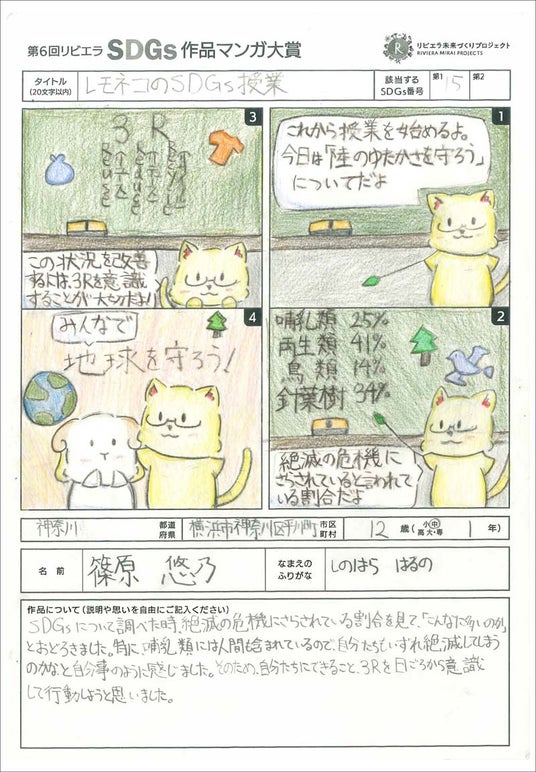 第6回リビエラ SDGs 作品マンガ大賞
リビエラ未来づくりプロジェクト
RIVIERA MIRAI PROJECTS
タイトル
(20文字以内)
レモネコのSDGs授業
該当する
SDGs番号
第1 15
第2
1
これから授業を始めるよ。
今日は「陸のゆたかさを守ろう」
についてだよ
2
哺乳類 25%
両生類 41%
鳥類 14%
針葉樹 34%
絶滅の危機に
さらされていると言われて
いる割合だよ
3
3R
Reduce
Reuse
この状況を改善
するには、3Rを意識
することが大切だよ!
4
みんなで
地球を守ろう!
神奈川 都道府県 横浜市神奈川区平川町 市区町村 12歳 (小・中・高・大・専 1年)
名前 篠原 悠乃 なまえのふりがな しのはら はるの
作品について(説明や思いを自由にご記入ください)
SDGsについて調べた時、絶滅の危機にさらされている割合を見て、「こんなに多いのか」
とおどろきました。特に、哺乳類には人間も含まれているので、自分たちもいずれ絶滅してしまう
のかなと自分事のように感じました。そのため、自分たちにできること、3Rを日ごろから意識
して行動しようと思いました。